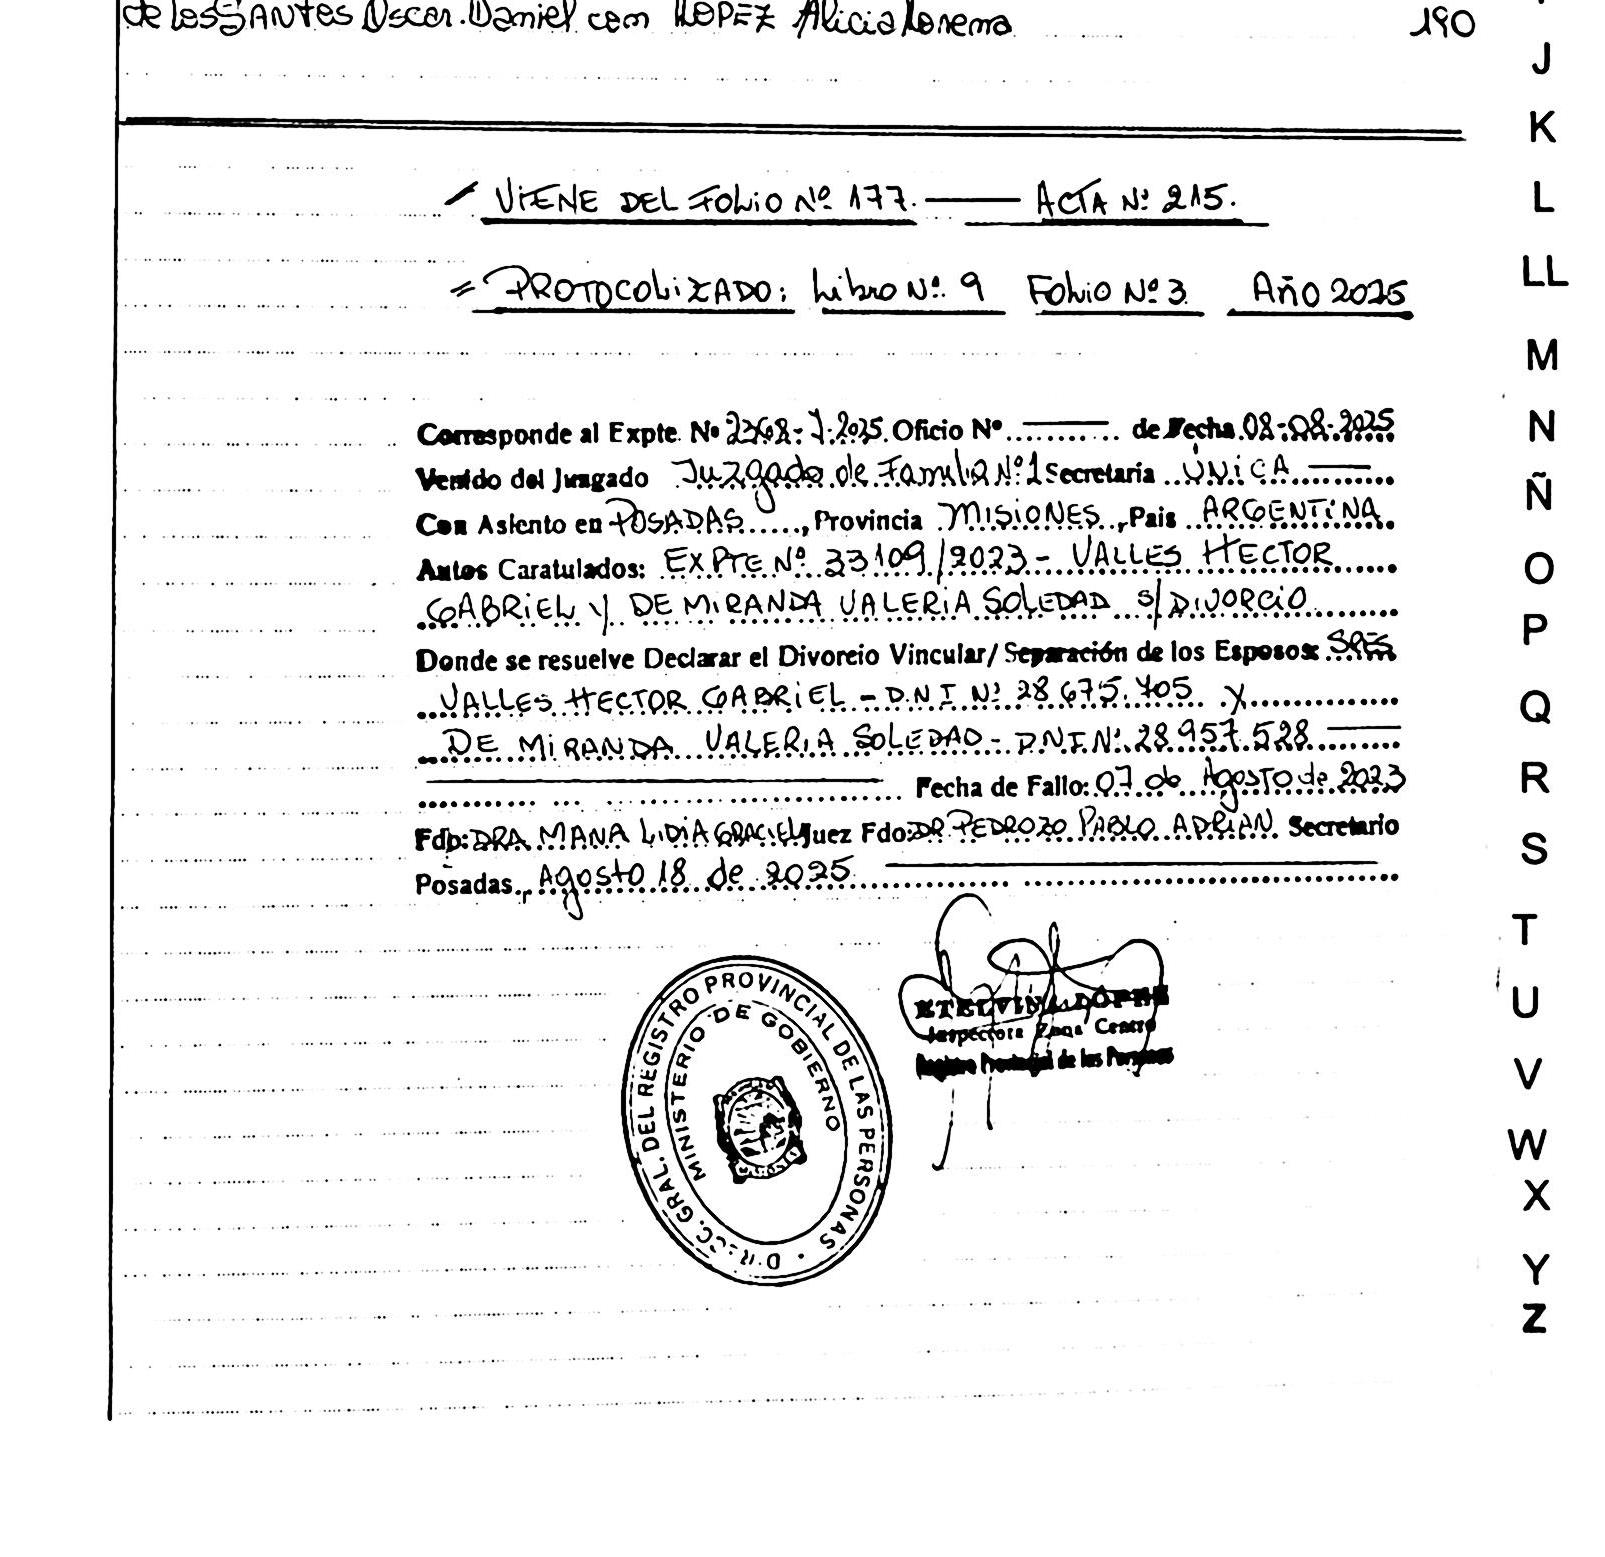 de los SANTOS Oscar Daniel con LOPEZ Alicia Lorena 190
VIENE DEL FOLIO Nº 177. ACTA Nº 215.
= PROTOCOLIZADO: Libro Nº 9 FOLIO Nº 3 AÑO 2025
Corresponde al Expte. Nº 2368-J-2025 Oficio Nº de Fecha 08-08-2025
Venido del Juzgado Juzgado de Familia Nº 1 Secretaria ÚNICA
Con Asiento en POSADAS, Provincia MISIONES, Pais ARGENTINA
Autos Caratulados: EXPTE Nº 33109/2023 - VALLES HECTOR
GABRIEL Y DE MIRANDA VALERIA SOLEDAD S/ DIVORCIO
Donde se resuelve Declarar el Divorcio Vincular/Separación de los Esposos: SRES
VALLES HECTOR GABRIEL - D.N.I Nº 28.675.705 Y
DE MIRANDA VALERIA SOLEDAD - D.N.I. Nº 28.957.528
Fecha de Fallo: 07 de Agosto de 2023
Fdo: DRA. MANA LIDIA GRACIELA Juez Fdo: DR PEDROZO PABLO ADRIAN Secretario
Posadas, Agosto 18 de 2025
DIRECC. GRAL. DEL REGISTRO PROVINCIAL DE LAS PERSONAS
MINISTERIO DE GOBIERNO
ETELVINA LOPEZ
Inspectora Zona Centro
Registro Provincial de las Personas
J
K
L
LL
M
N
Ñ
O
P
Q
R
S
T
U
V
W
X
Y
Z